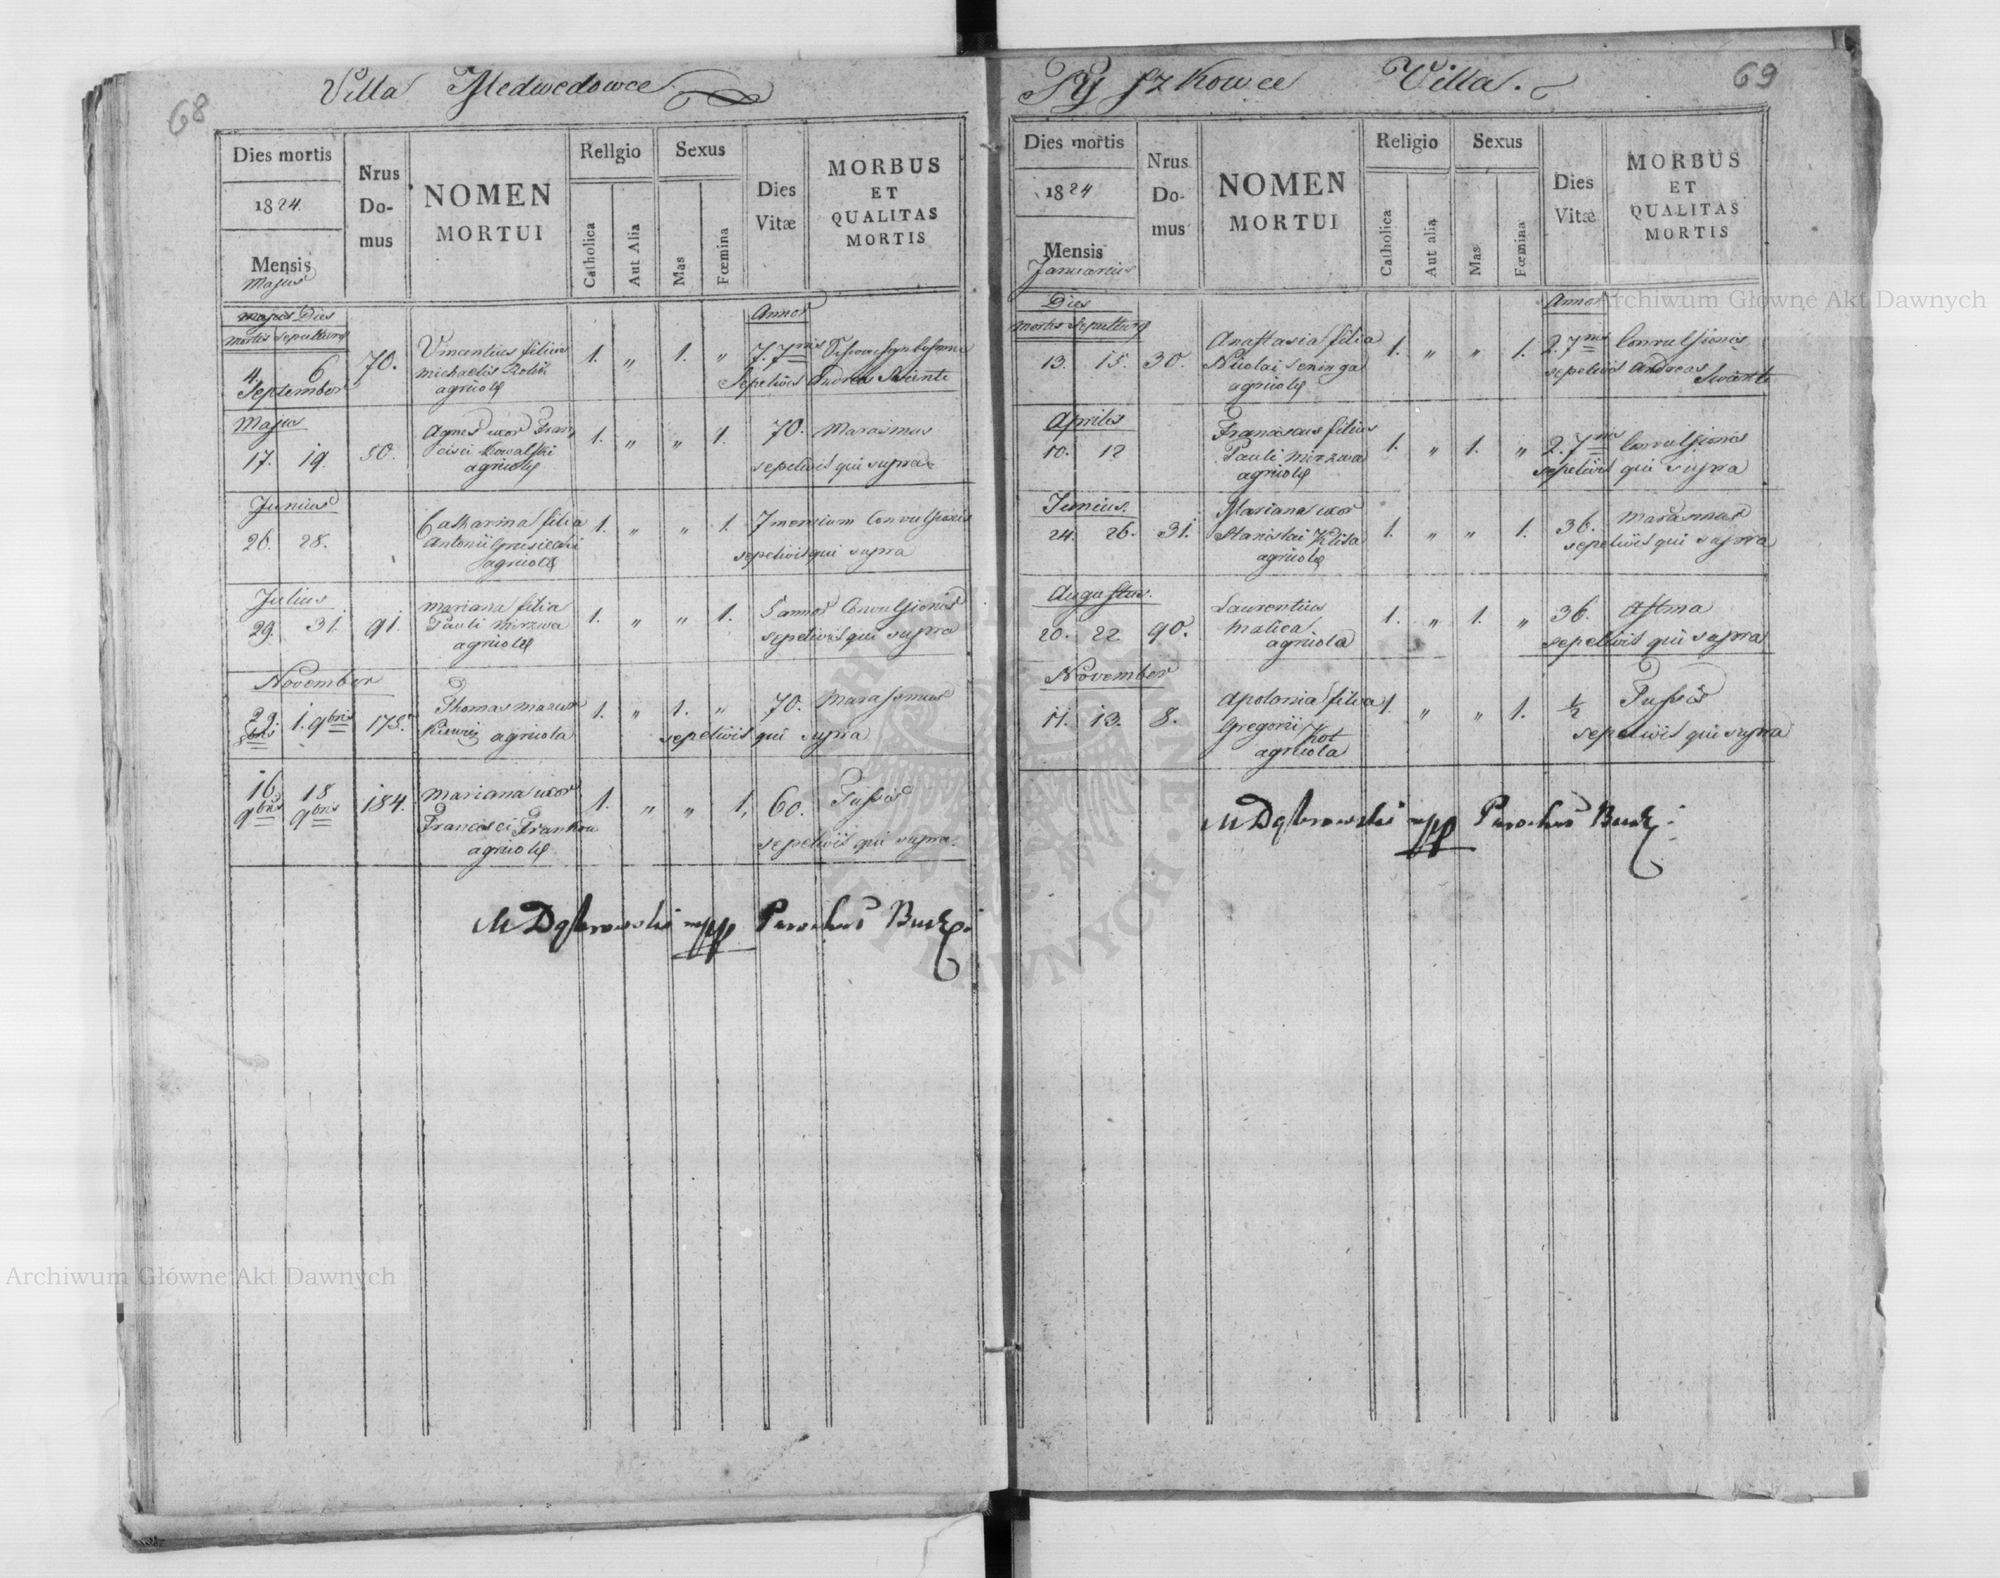 68
Villa Medwedowce
Dies mortis
1824.
Mensis
Majus
Nrus
Do-
mus
NOMEN
MORTUI
Religio
Catholica
Aut Alia
Sexus
Mas
Fœmina
Dies
Vitæ
MORBUS
ET
QUALITAS
MORTIS
Majus Dies
mortis sepulturæ
Annos
4 6 70. Vincentius filius 1. " 1. "
September Michaelis
agricolæ
Sepelivit Andreas
Majus
17. 19. 50. Agnes uxor Fran 1. " " 1. 70. Marasmus
cisci Kowalski
agricolæ sepelivit qui supra
Junius
26. 28. Catharina filia 1. " " 1. 7 mensium Convulsionis
Antonii
agricolæ sepelivit qui supra
Julius
29. 31. 91. Mariana filia 1. " " 1. 5 annos Convulsionis
Pauli Mirzwa
agricolæ sepelivit qui supra
November
29. 1. 9bris 175. Thomas Mazur 1. " 1. " 70. Marasmus
kiewicz agricola sepelivit qui supra
16 18 184. Mariana uxor 1. " " 1. 60. Tussis
9bris 9bris Francisci Frankow
agricolæ sepelivit qui supra.
M Dąbrowski mpp Parochus Bucz:
Pyszkowce Villa.
69
Dies mortis
1824
Mensis
Januarius
Nrus
Do-
mus
NOMEN
MORTUI
Religio
Catholica
Aut alia
Sexus
Mas
Fœmina
Dies
Vitæ
MORBUS
ET
QUALITAS
MORTIS
Dies
mortis sepulturæ
Annos
13. 15. 30. Anastasia filia 1. " " 1. 2. 7 Convulsionis
Nicolai Seninga sepelivit Andreas
agricolæ
Aprilis
10. 12 Franciscus filius 1. " 1. " 2. 7 Convulsionis
Pauli Mirzwa sepelivit qui supra
agricolæ
Junius.
24. 26. 31. Mariana uxor 1. " " 1. 36. Marasmus
Stanislai Klisa sepelivit qui supra
agricolæ
Augustus.
20. 22 90. Laurentius 1. " 1. " 36. Astma
Malica
agricola sepelivit qui supra
November
11. 13. 8. Apolonia filia 1. " " 1. ½ Tussis
Gregorii Kot
agricola sepelivit qui supra
M Dąbrowski mpp Parochus Bucz:
Archiwum Główne Akt Dawnych
Archiwum Główne Akt Dawnych